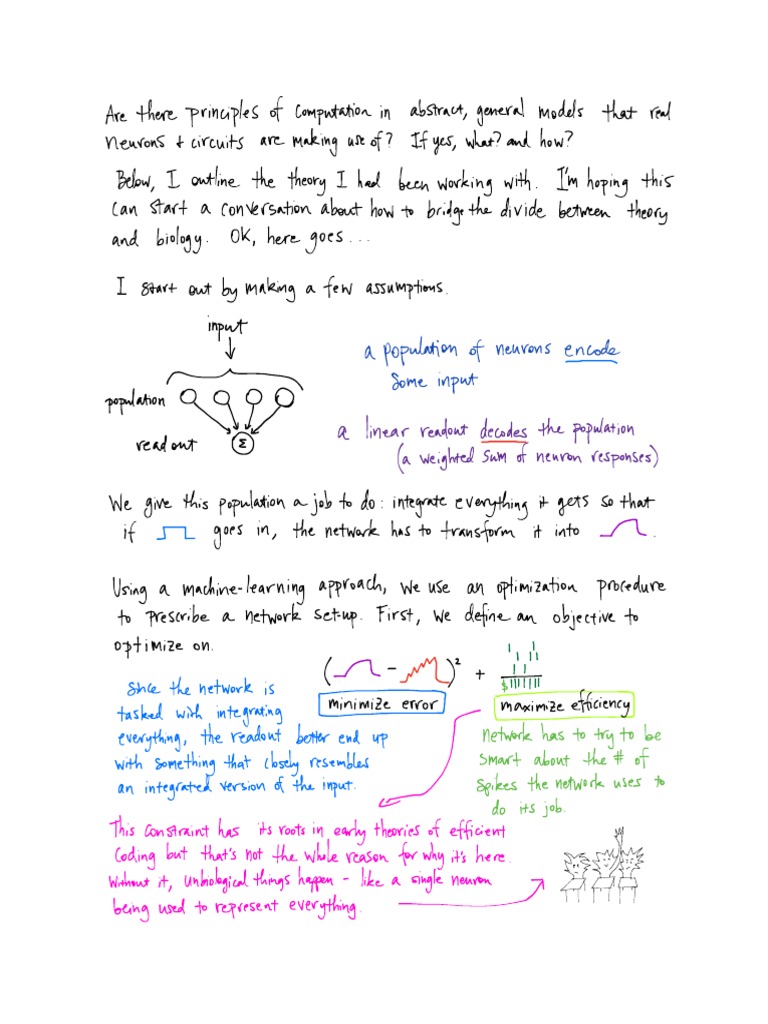 Are there principles of computation in abstract, general models that real
neurons + circuits are making use of? If yes, what? and how?
Below, I outline the theory I had been working with. I'm hoping this
can start a conversation about how to bridge the divide between theory
and biology. OK, here goes...
I start out by making a few assumptions.
input
population
readout
Σ
a population of neurons encode
some input
a linear readout decodes the population
(a weighted sum of neuron responses)
We give this population a job to do: integrate everything it gets so that
if goes in, the network has to transform it into .
Using a machine-learning approach, we use an optimization procedure
to prescribe a network set-up. First, we define an objective to
optimize on.
( - )² +
minimize error
maximize efficiency
Since the network is
tasked with integrating
everything, the readout better end up
with something that closely resembles
an integrated version of the input.
Network has to try to be
smart about the # of
spikes the network uses to
do its job.
This constraint has its roots in early theories of efficient
coding but that's not the whole reason for why it's here.
Without it, unbiological things happen - like a single neuron
being used to represent everything.